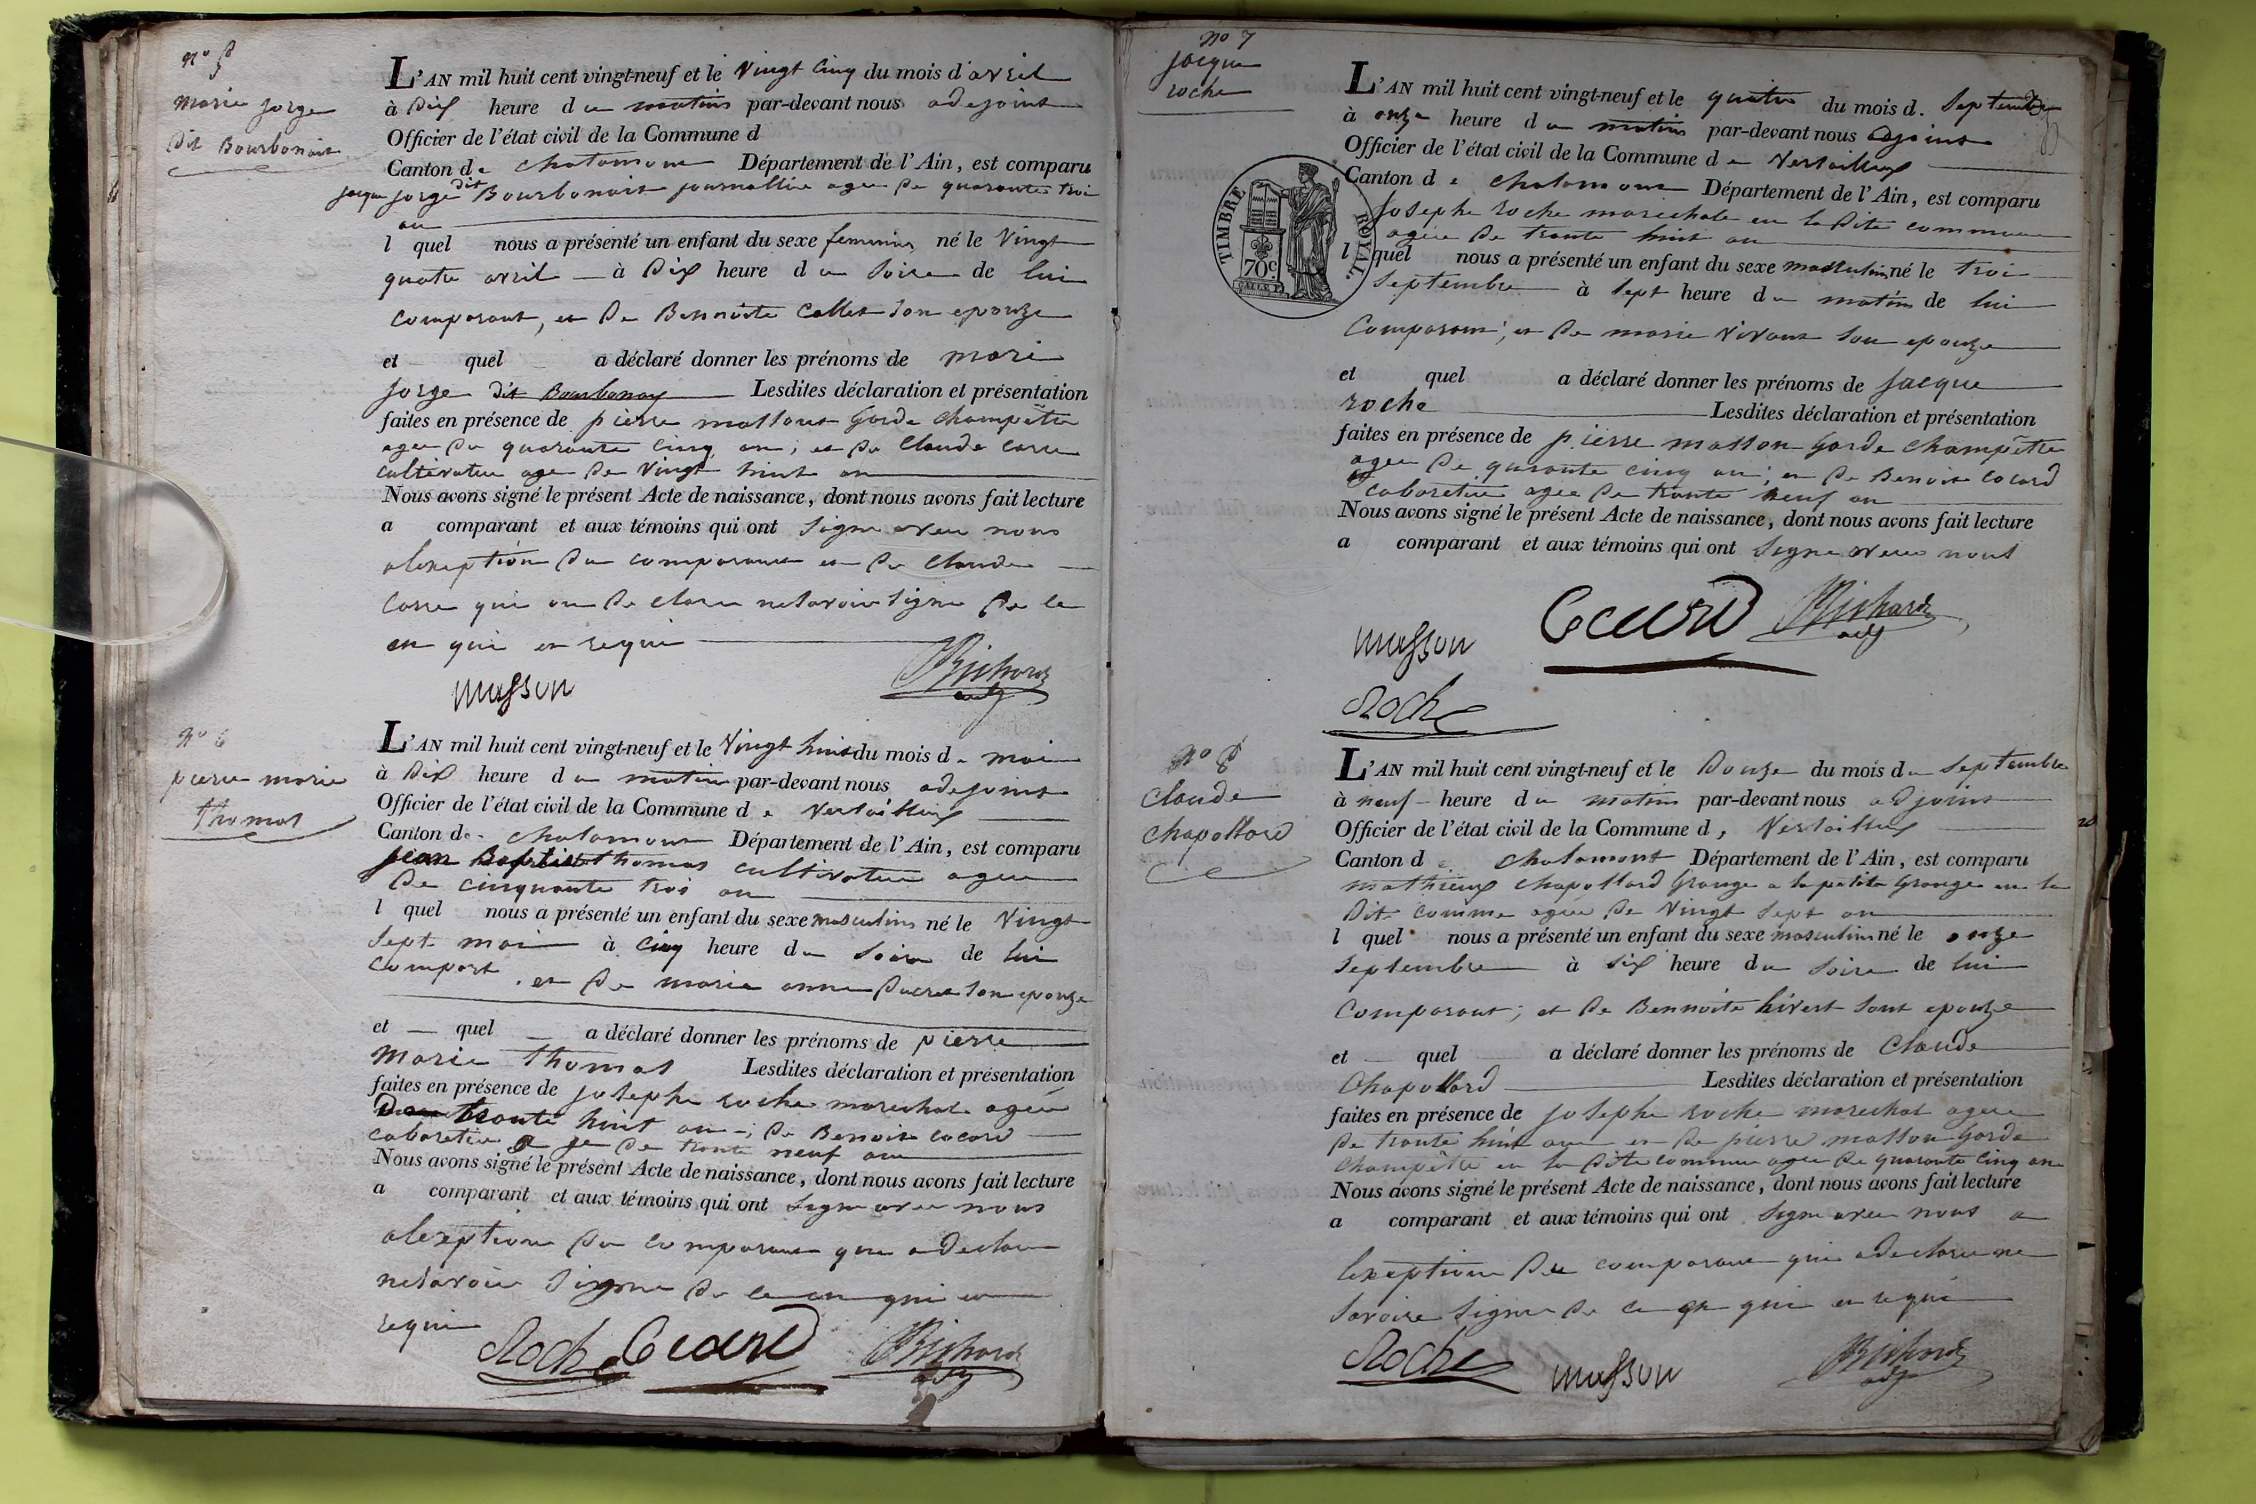 N° 5
Marie jorge
Dit Bourbonait
L'AN mil huit cent vingt-neuf et le Vingt Cinq du mois d'avril
à Dix heure du matins par-devant nous adejoint
Officier de l'état civil de la Commune d
Canton de chalamon Département de l'Ain, est comparu
jacque jorge dit Bourbonait journallie agee de quarante troi
an
l quel nous a présenté un enfant du sexe feminin né le Vingt
quatre avril à Dix heure du Soire de lui
comparant, et De Bennoite Collet Son epouze
et quel a déclaré donner les prénoms de mari
jorge dit Bourbonay Lesdites déclaration et présentation
faites en présence de pierre masson Garde Champêtre
agee De quarante cinq an ; et De Claude
cultivateur age De Vingt huit an
Nous avons signé le présent Acte de naissance, dont nous avons fait lecture
a comparant et aux témoins qui ont Signe avec nous
alexeption Du comparant et De Claude
qui on De clare ne Savoir Signe De ce
en qui et requi
masson
Richard
adj
N° 6
pierre marie
thomas
L'AN mil huit cent vingt-neuf et le Vingt huit du mois de mai
à Dix heure du matin par-devant nous adejoint
Officier de l'état civil de la Commune de Versailleux
Canton de chalamont Département de l'Ain, est comparu
jean Baptiste thomas cultivateur agee
De cinquante trois an
l quel nous a présenté un enfant du sexe masculin né le Vingt
Sept mai à Cinq heure du Soire de lui
comport, et De marie anne Ducret Son epouze
et quel a déclaré donner les prénoms de pierre
Marie thomas Lesdites déclaration et présentation
faites en présence de josephe roche marechale agee
trante huit an ; De Benoit cocard
cabaretie age De trante neuf an
Nous avons signé le présent Acte de naissance, dont nous avons fait lecture
a comparant et aux témoins qui ont Signe avec nous
alexeption Du comparant qui a Declare
ne Savoir Signe De ce en qui et
requi
Roche Cocard Richard
adj
N° 7
jacque
roche
TIMBRE ROYAL.
70 c
L'AN mil huit cent vingt-neuf et le quatre du mois d. Septembre
à onze heure du matins par-devant nous adjoint
Officier de l'état civil de la Commune de Versailleux
Canton de chalamon Département de l'Ain, est comparu
josephe roche marechale en la Dite commune
agee De trante huit an
l quel nous a présenté un enfant du sexe masculin né le troi
Septembre à Sept heure du matin de lui
Comparant ; et De marie Vivant Son epouze
et quel a déclaré donner les prénoms de jacque
roche Lesdites déclaration et présentation
faites en présence de pierre masson Garde Champêtre
agee De quarante cinq an ; et De Benoit cocard
cabaretie agee De trante neuf an
Nous avons signé le présent Acte de naissance, dont nous avons fait lecture
a comparant et aux témoins qui ont Signe avec nous
masson Cocard Richard
adj
Roche
N° 8
Claude
Chapollard
L'AN mil huit cent vingt-neuf et le Douze du mois de Septembre
à neuf heure du matins par-devant nous adjoint
Officier de l'état civil de la Commune de Versailleux
Canton de chalamont Département de l'Ain, est comparu
mathieux Chapollard Grange a la petite Grange en la
Dit comme agee De Vingt Sept an
l quel nous a présenté un enfant du sexe masculin né le onze
Septembre à Six heure du Soire de lui
Comparant ; et De Bennoite hivert Sont epouze
et quel a déclaré donner les prénoms de Claude
Chapollard Lesdites déclaration et présentation
faites en présence de josephe roche marechal agee
De trante huit an et De pierre masson Garde
Champêtre en la Dite commune agee De quarante cinq an
Nous avons signé le présent Acte de naissance, dont nous avons fait lecture
a comparant et aux témoins qui ont Signe avec nous a
lexeption Du comparant qui a declare ne
Savoire Signe De ce en qui et requi
Roche masson Richard
adj